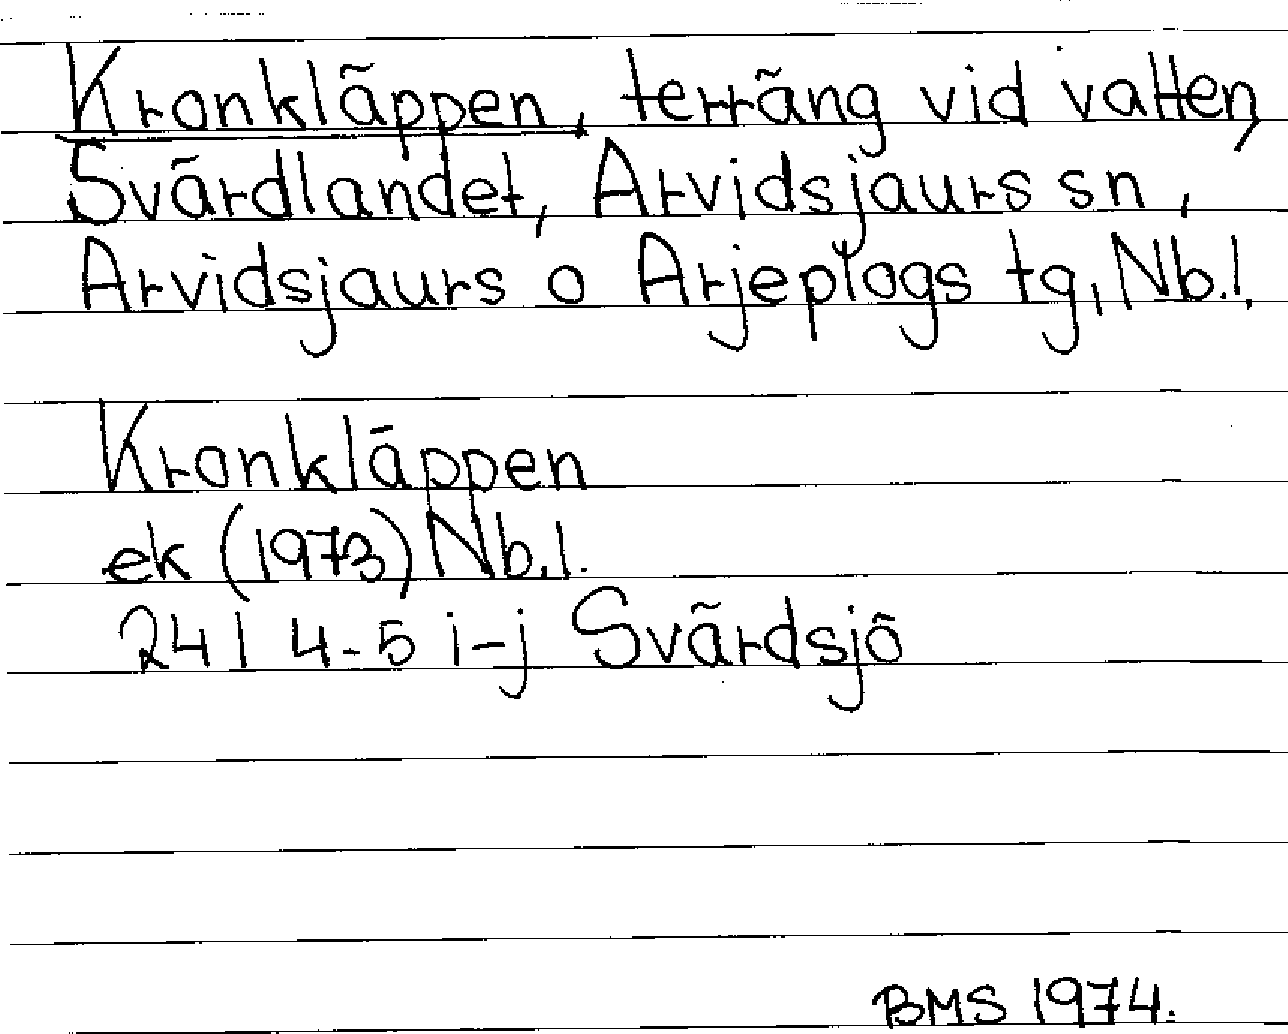 Kronkläppen, terräng vid vatten,
Svärdlandet, Arvidsjaurs sn,
Arvidsjaurs o Arjeplogs tg, Nb.l.
Kronkläppen
ek (1973) Nb.l.
24 I 4-5 i-j Svärdsjö
BMS 1974.